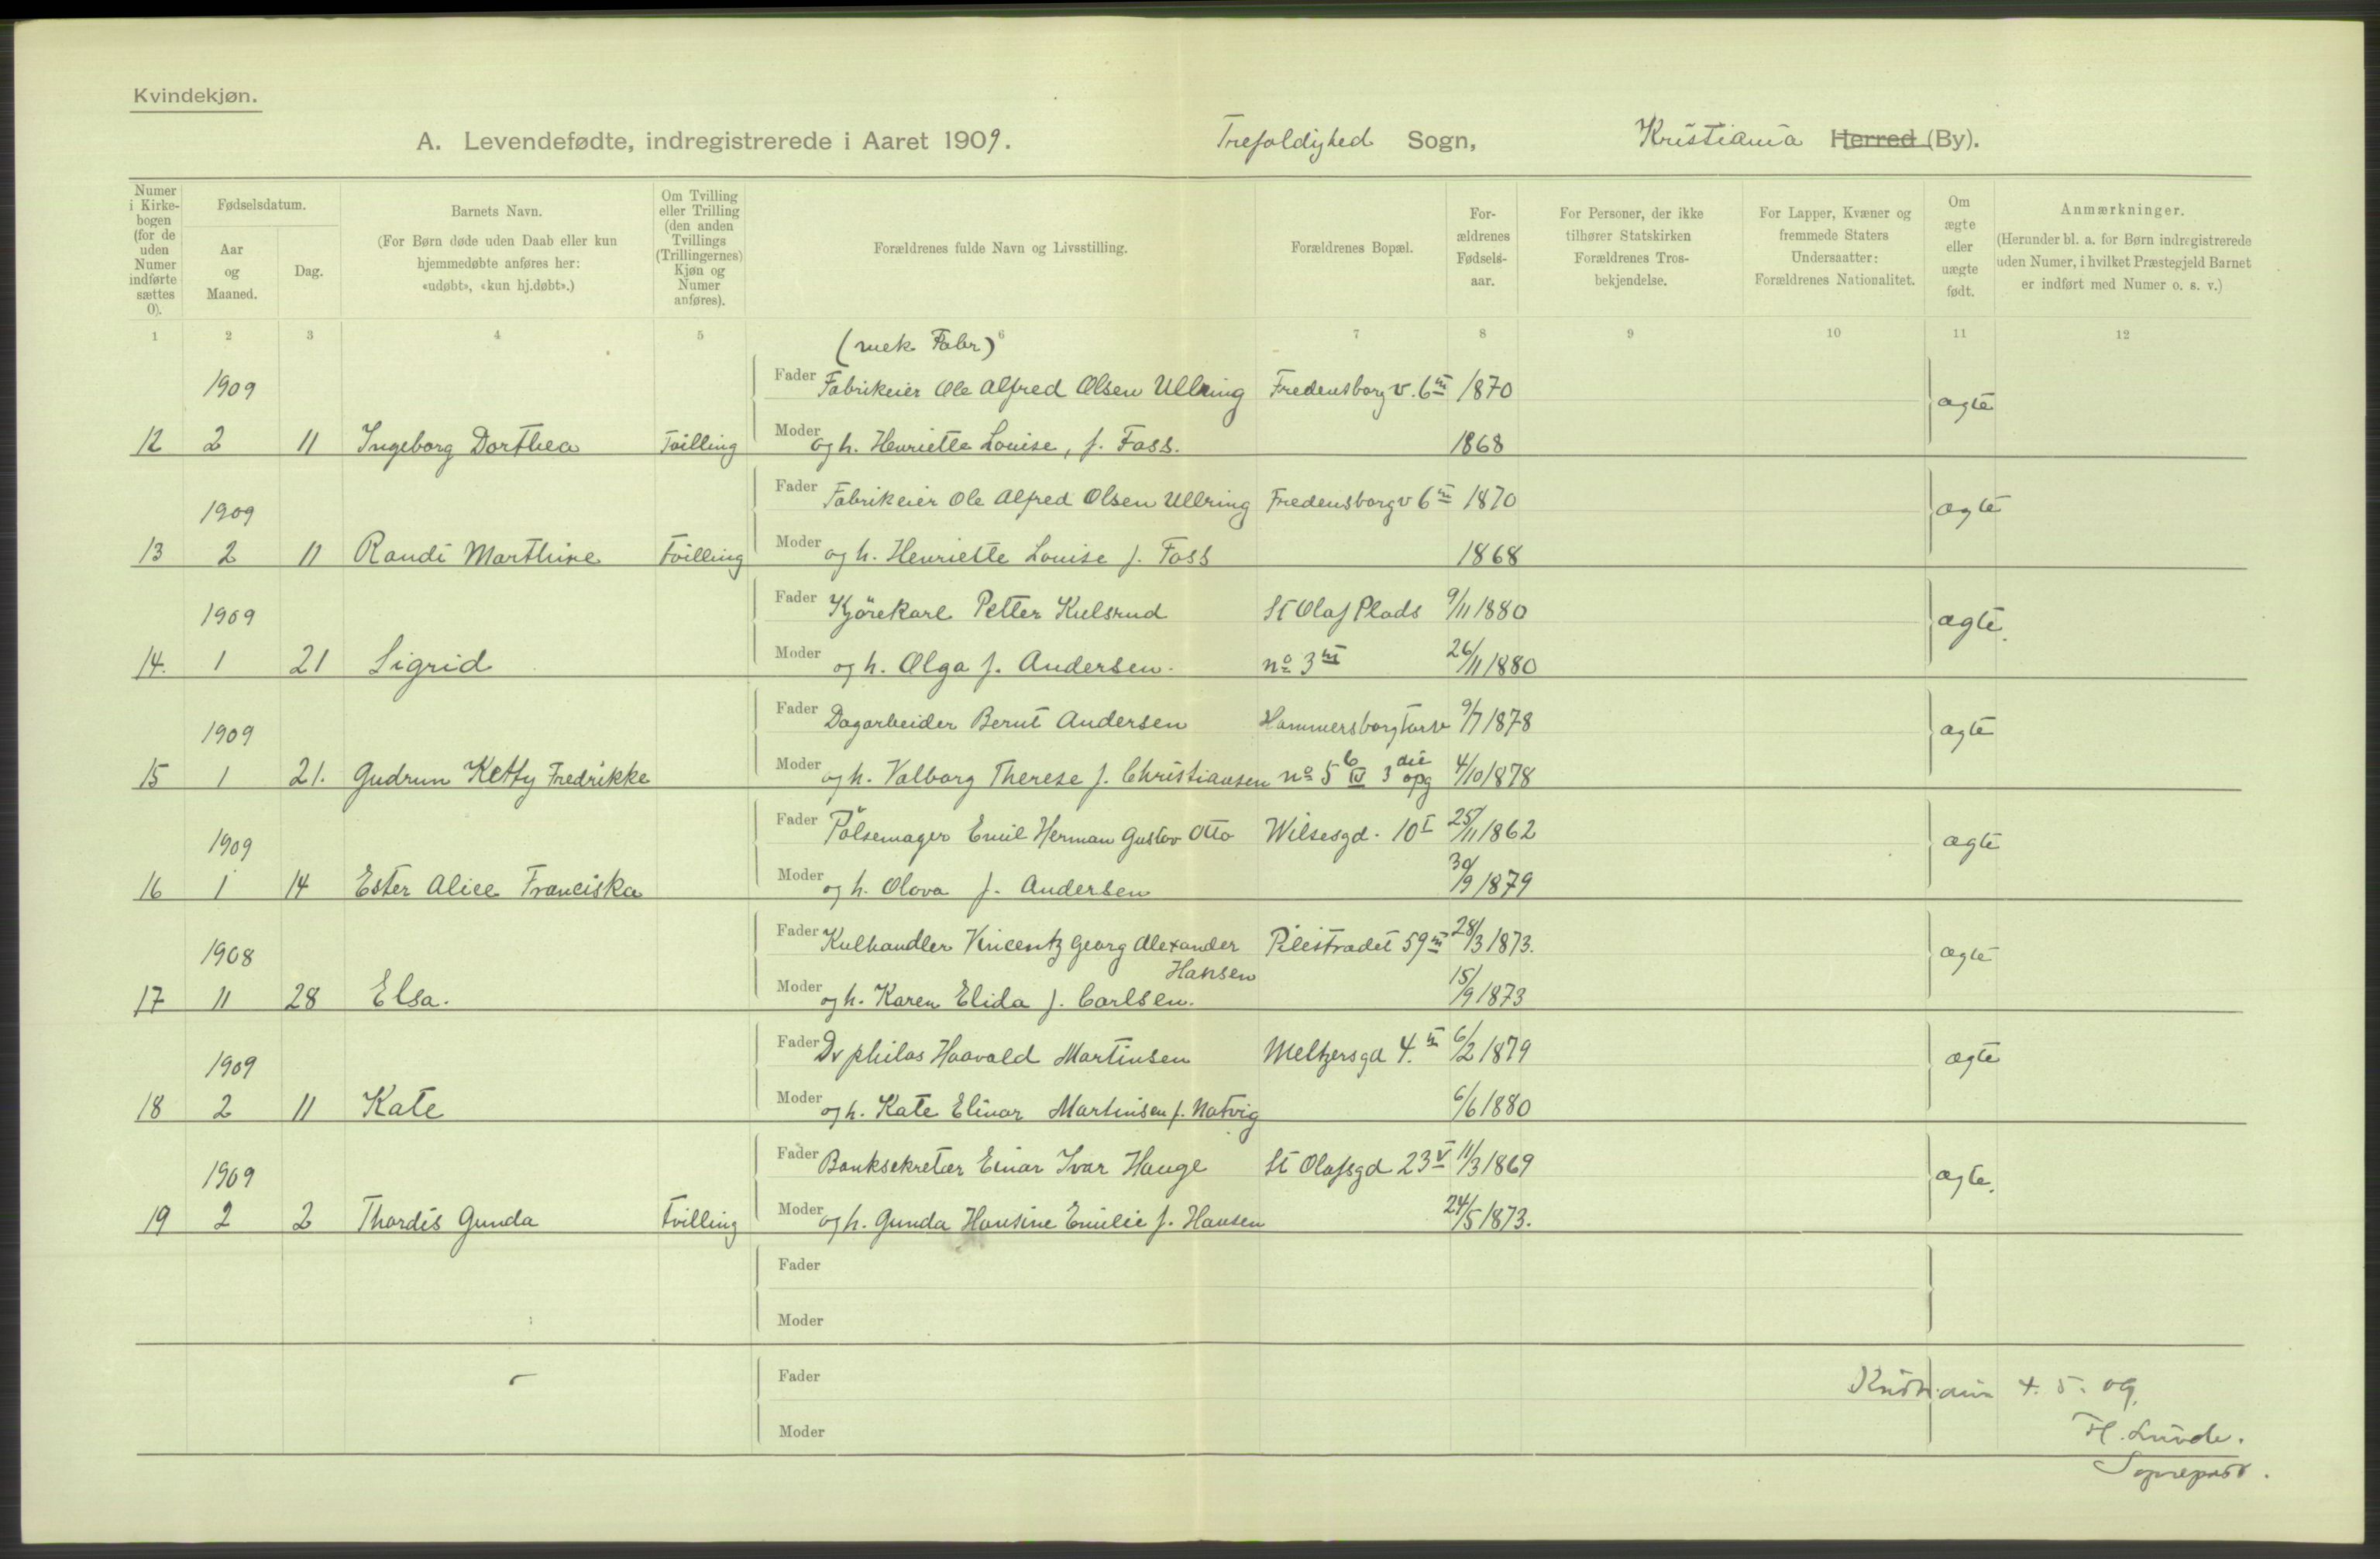 Kvindekjøn.
A. Levendefødte, indregistrerede i Aaret 1909. Trefoldighed Sogn, Kristiania Herred (By).
Numer i Kirkebogen (for de uden Numer indførte sættes 0).
Fødselsdatum.
Aar og Maaned.
Dag.
Barnets Navn.
(For Børn døde uden Daab eller kun hjemmedøbte anføres her: «udøbt», «kun hj.døbt».)
Om Tvilling eller Trilling (den anden Tvillings (Trillingernes) Kjøn og Numer anføres).
Forældrenes fulde Navn og Livsstilling.
Forældrenes Bopæl.
Forældrenes Fødselsaar.
For Personer, der ikke tilhører Statskirken Forældrenes Trosbekjendelse.
For Lapper, Kvæner og fremmede Staters Undersaatter: Forældrenes Nationalitet.
Om ægte eller uægte født.
Anmærkninger.
(Herunder bl. a. for Børn indregistrerede uden Numer, i hvilket Præstegjeld Barnet er indført med Numer o. s. v.)
1 2 3 4 5 6 7 8 9 10 11 12
(mek. Fabr)
1909 Fader Fabrikeier Ole Alfred Olsen Ullring Fredensborgv. 6 III 1870 ægte
12 2 11 Ingeborg Dorthea Tvilling Moder og h. Henriette Louise, f. Foss. 1868
1909 Fader Fabrikeier Ole Alfred Olsen Ullring Fredensborgv 6 III 1870 ægte
13 2 11 Randi Marthine Tvilling Moder og h. Henriette Louise f. Foss 1868
1909 Fader Kjörekarl Petter Kulsrud St Olaf Plads 9/11 1880 ægte.
14. 1 21 Sigrid Moder og h. Olga f. Andersen. no 3 III 26/11 1880
1909 Fader Dagarbeider Bernt Andersen Hammersborgtorv 9/7 1878 ægte
15 1 21. Gudrun Ketty Fredrikke Moder og h. Valborg Therese f. Christiansen no 5 b IV 3 die opg 4/10 1878
1909 Fader Pölsemager Emil Herman Gustav Otto Wilsesgd. 10 I 25/11 1862 ægte
16 1 14 Ester Alice Franciska Moder og h. Olava f. Andersen 30/9 1879
1908 Fader Kulhandler Vincentz Georg Alexander Pilestrædet 59 III 28/3 1873. ægte
Hansen
17 11 28 Elsa. Moder og h. Karen Elida f. Carlsen. 15/9 1873
1909 Fader Dr philos Haavald Martinsen Meltzersgd 4. III 6/2 1879 ægte
18 2 11 Kate Moder og h. Kate Elinor Martinsen f. Natvig 6/6 1880
1909 Fader Banksekretær Einar Ivar Hauge St Olafsgd 23 V 11/3 1869 ægte.
19 2 2 Thordis Gunda Tvilling Moder og h. Gunda Hansine Emilie f. Hansen 24/5 1873.
Fader
Moder
Fader
Kristiania 4. 5. 09.
Moder
H. Lunde.
Sognepræst.